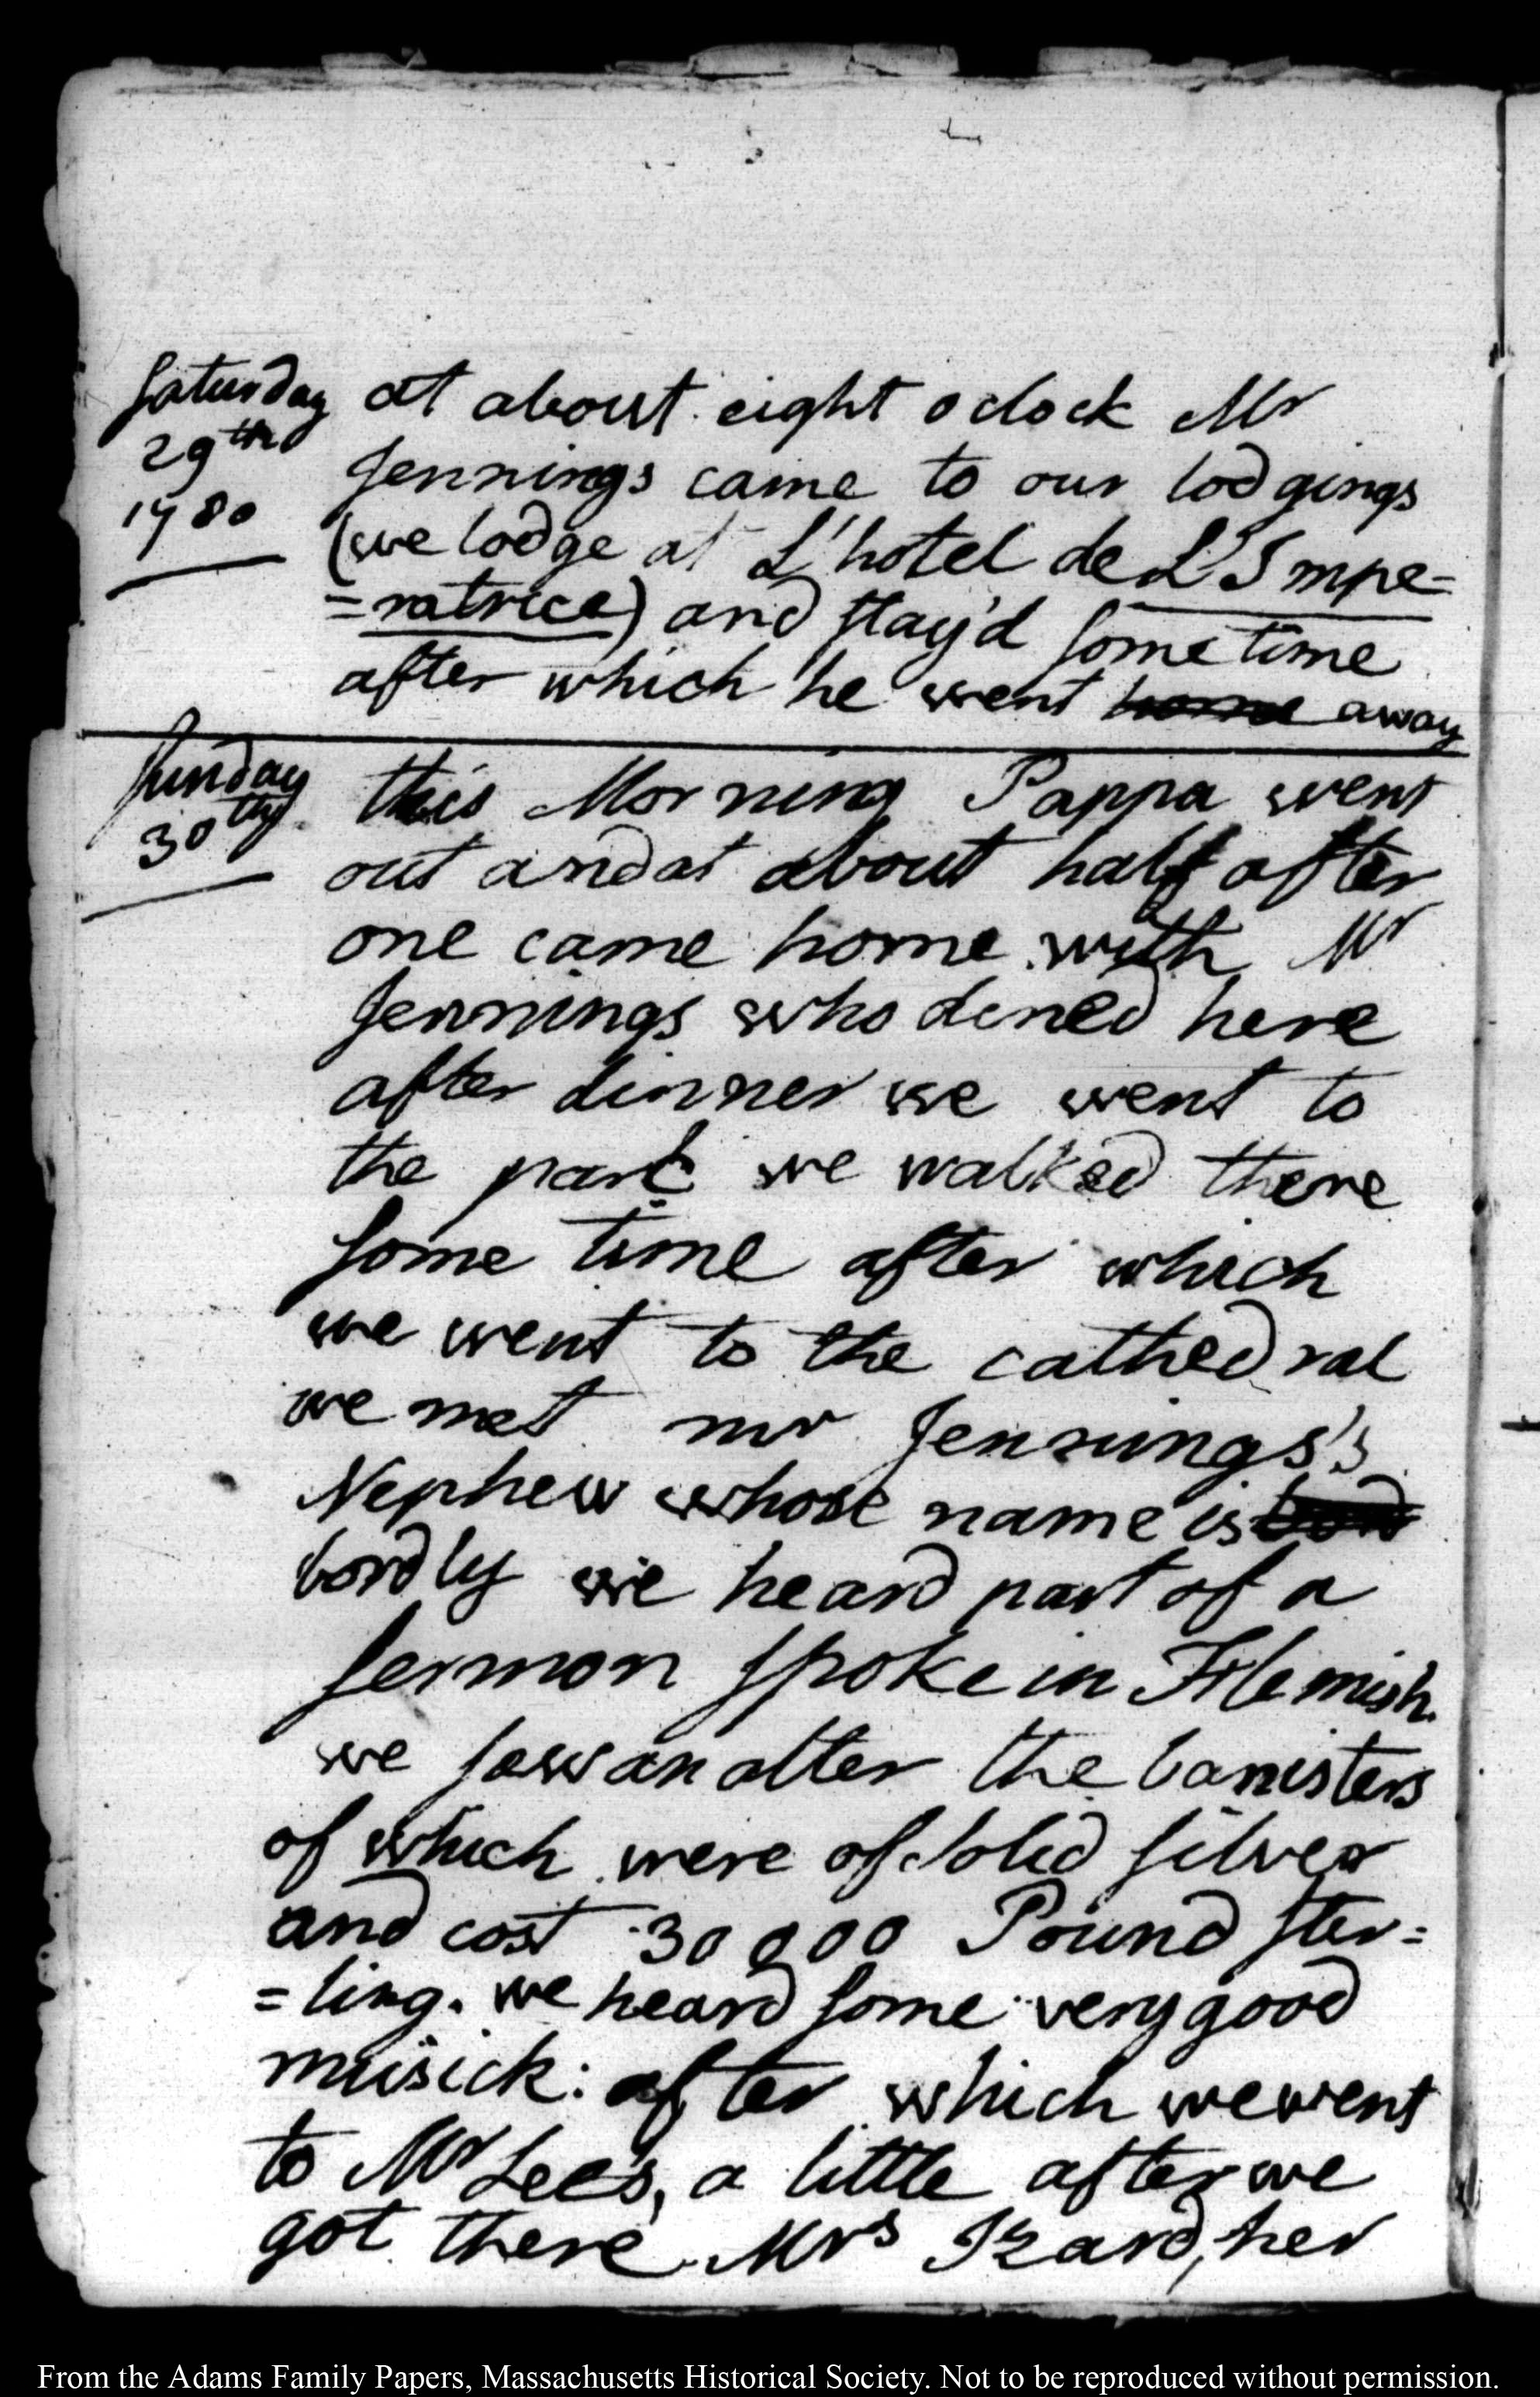 Saturday
29th
1780
at about eight o clock Mr
Jennings came to our lodgings
(we lodge at L'hotel de L'Impe=
=ratrice) and stay'd some time
after which he went home away
Sunday
30th
this Morning Pappa went
out and at about half after
one came home with Mr
Jennings who dined here
after dinner we went to
the park we walked there
some time after which
we went to the cathedral
we met mr Jennings's
Nephew whose name is
bordly we heard part of a
sermon spoke in Flemish.
we saw an alter the banisters
of which were of solid silver
and cost 30000 Pound ster=
=ling. we heard some very good
musick: after which we went
to Mr Lee's, a little after we
got there Mrs Izard, her
From the Adams Family Papers, Massachusetts Historical Society. Not to be reproduced without permission.